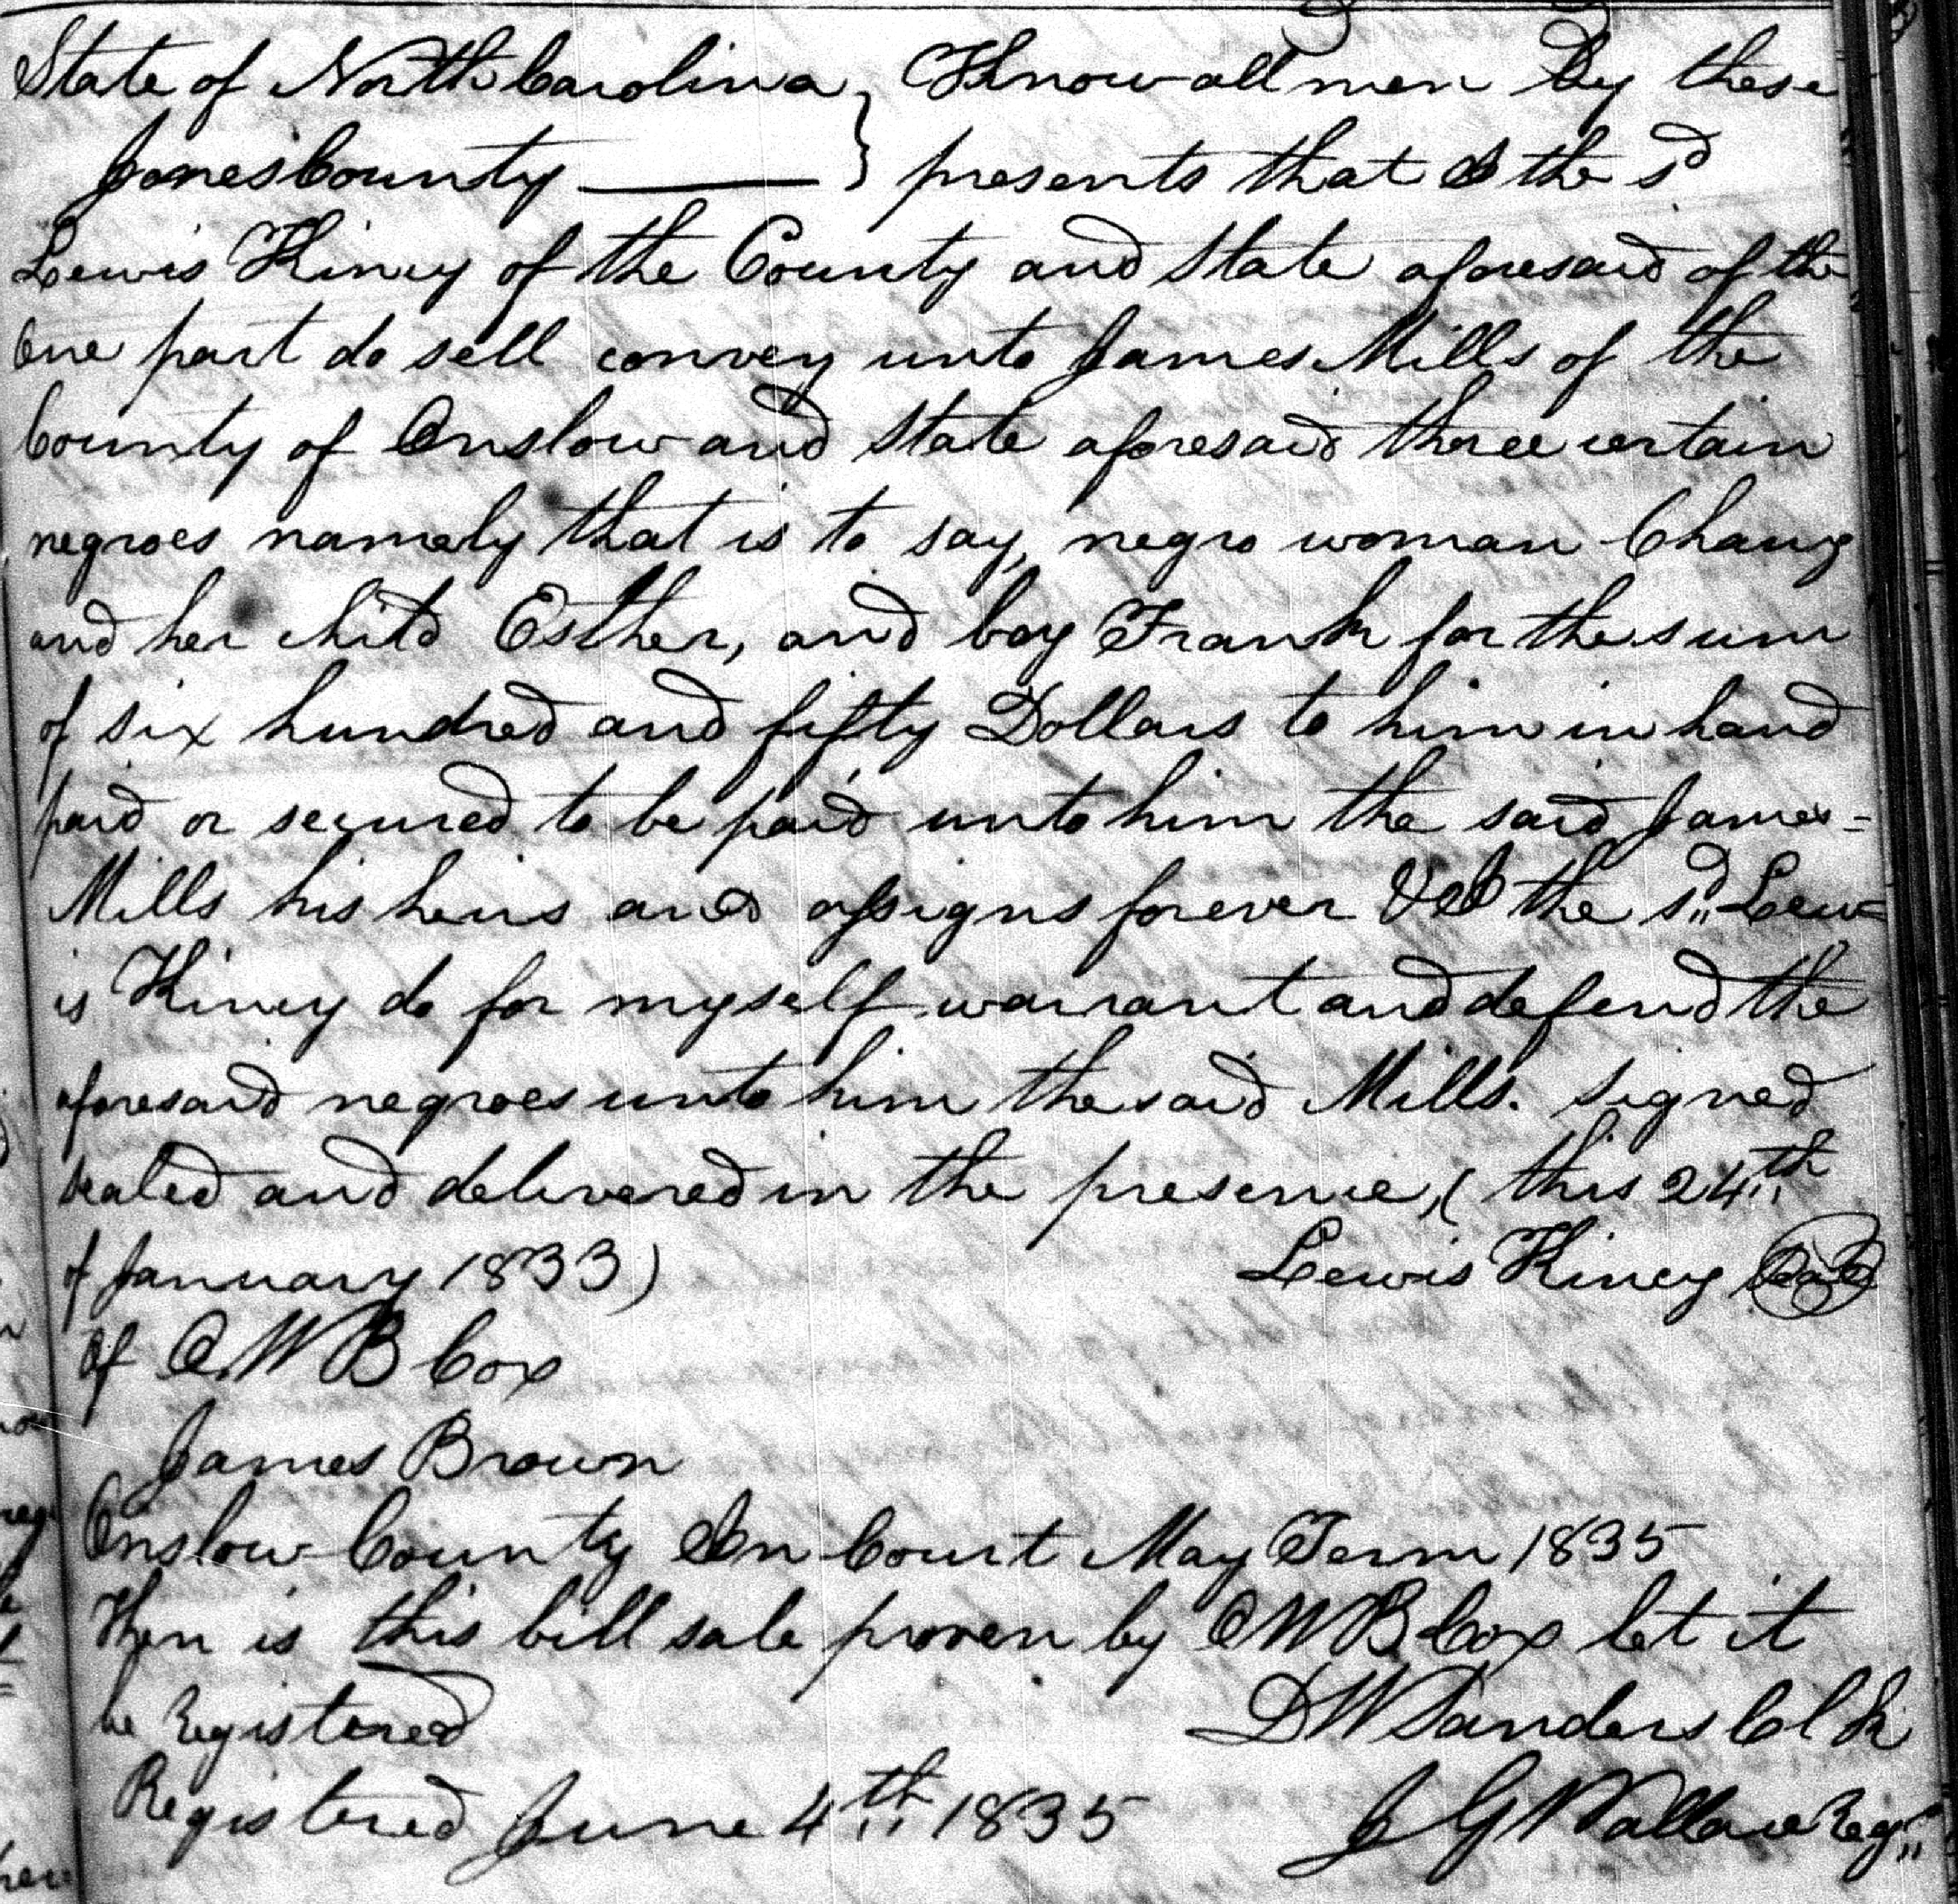 State of North Carolina } Know all men by these
Jones County ——— } presents that I the sd
Lewis Kiney of the County and State aforesaid of the
One part do sell convey unto James Mills of the
County of Onslow and State aforesaid three certain
negroes namely that is to say, negro woman Chany
and her child Esther, and boy Frank for the sum
of six hundred and fifty Dollars to him in hand
paid or secured to be paid unto him the said James=
Mills his heirs and assigns forever the sd Lew=
is Kiney do for myself warrant and defend the
aforesaid negroes unto him the said Mills. signed
sealed and delivered in the presence, ( this 24th
of January 1833) Lewis Kiney Seal
Of C. W B Cox
James Brown
Onslow County In Court May Term 1835
Then is this bill sale proven by C W B Cox let it
be Registered D W Sanders Clk
Registered June 4th 1835 J G Wallace Regr